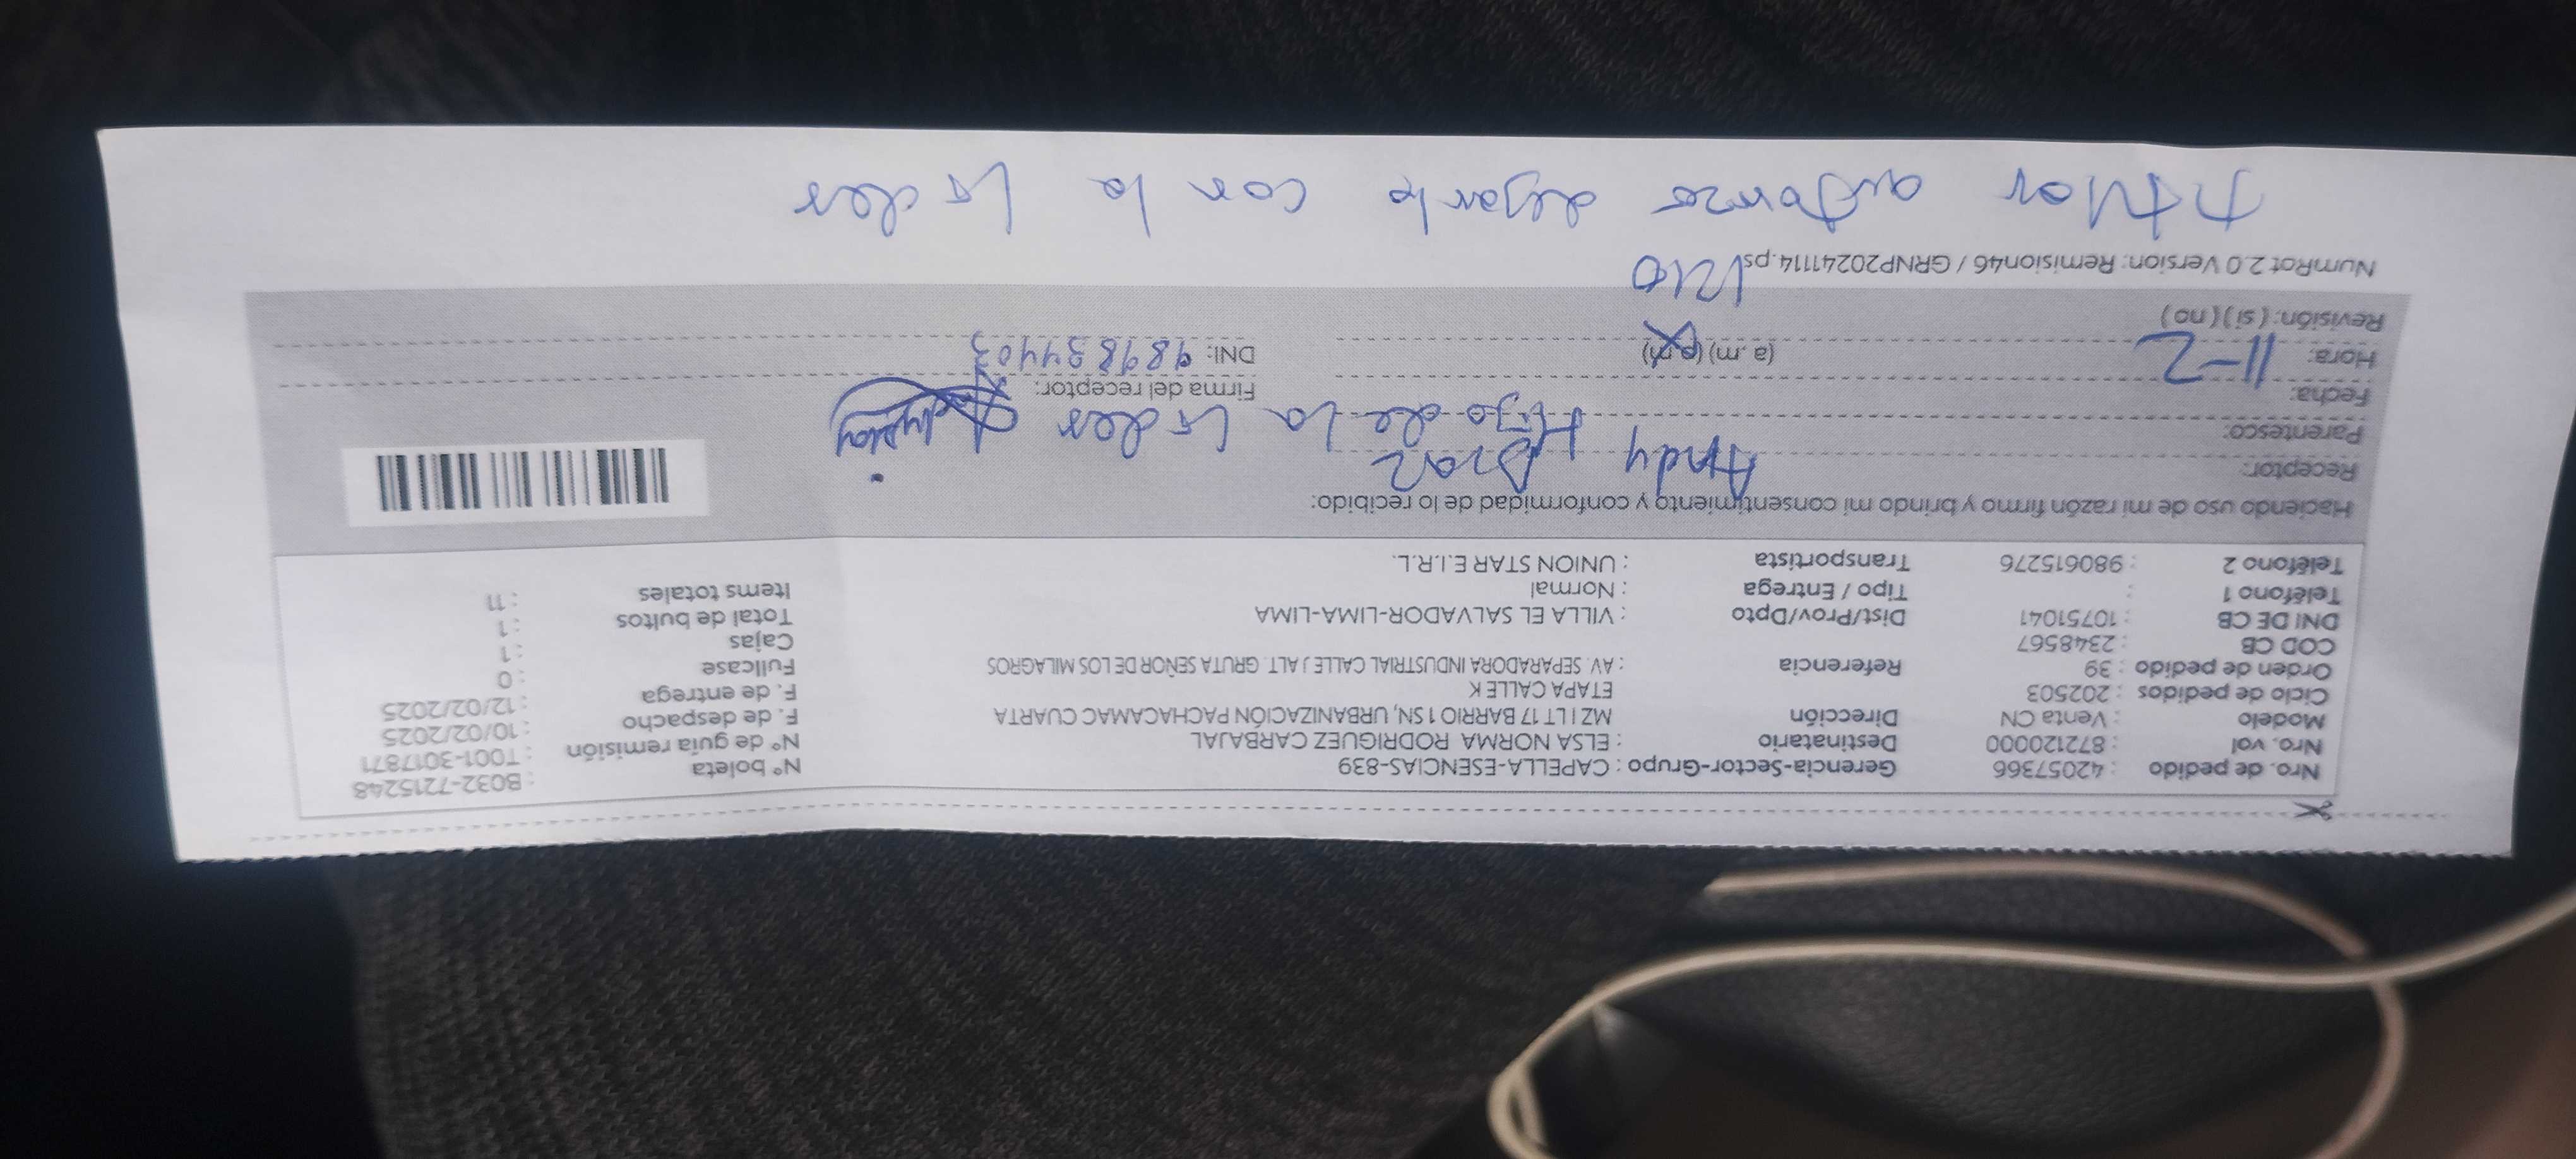 Nro. de pedido : 42057366 Gerencia-Sector-Grupo : CAPELLA-ESENCIAS-839 N° boleta : B032-7215248
Nro. vol : 872120000 Destinatario : ELSA NORMA RODRIGUEZ CARBAJAL N° de guía remisión : T001-3017871
Modelo : Venta CN Dirección MZ I LT 17 BARRIO 1 SN, URBANIZACIÓN PACHACAMAC CUARTA F. de despacho : 10/02/2025
Ciclo de pedidos : 202503 ETAPA CALLE K F. de entrega : 12/02/2025
Orden de pedido : 39 Referencia : AV. SEPARADORA INDUSTRIAL CALLE J ALT. GRUTA SEÑOR DE LOS MILAGROS Fullcase : 0
COD CB : 2348567 Cajas : 1
DNI DE CB : 10751041 Dist/Prov/Dpto : VILLA EL SALVADOR-LIMA-LIMA Total de bultos : 1
Teléfono 1 : Tipo / Entrega : Normal Items totales : 11
Teléfono 2 : 980615276 Transportista : UNION STAR E.I.R.L.
Haciendo uso de mi razón firmo y brindo mi consentimiento y conformidad de lo recibido:
Receptor: Andy Diaz
Parentesco: Hijo de la Lider
Fecha: 11-2 Firma del receptor:
Hora: (a.m) (p.m) DNI: 989834403
Revisión: (si) (no) 1210
NumRot 2.0 Version: Remision46 / GRNP20241114.ps
autorizo dejarlo con la Lider